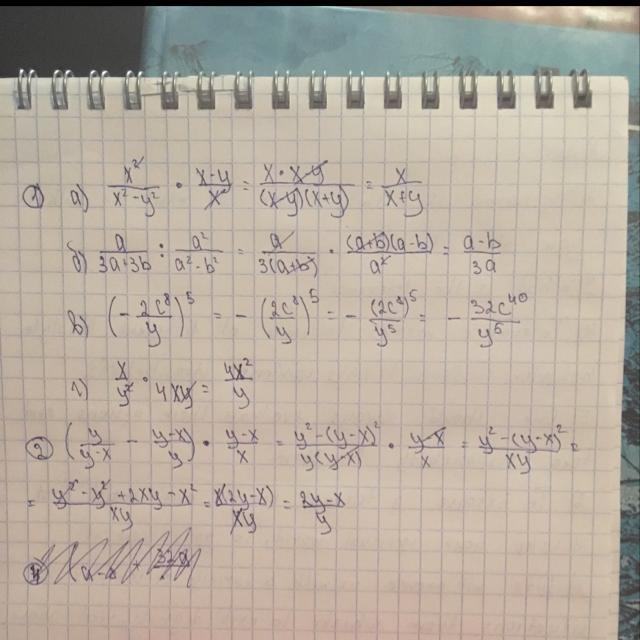 ① а) x²/(x²-y²) · (x-y)/x = (x·x-y)/((x-y)(x+y)) = x/(x+y)
б) a/(3a+3b) : a²/(a²-b²) = a/(3(a+b)) · ((a+b)(a-b))/a² = (a-b)/(3a)
в) (-2c⁸/y)⁵ = -(2c⁸/y)⁵ = -(2c⁸)⁵/y⁵ = -32c⁴⁰/y⁵
г) x/y² · 4xy = 4x²/y
② (y/(y-x) - (y-x)/y) · (y-x)/x = (y²-(y-x)²)/(y(y-x)) · (y-x)/x = (y²-(y-x)²)/(xy) =
= (y²-y²+2xy-x²)/(xy) = x(2y-x)/(xy) = (2y-x)/y
④